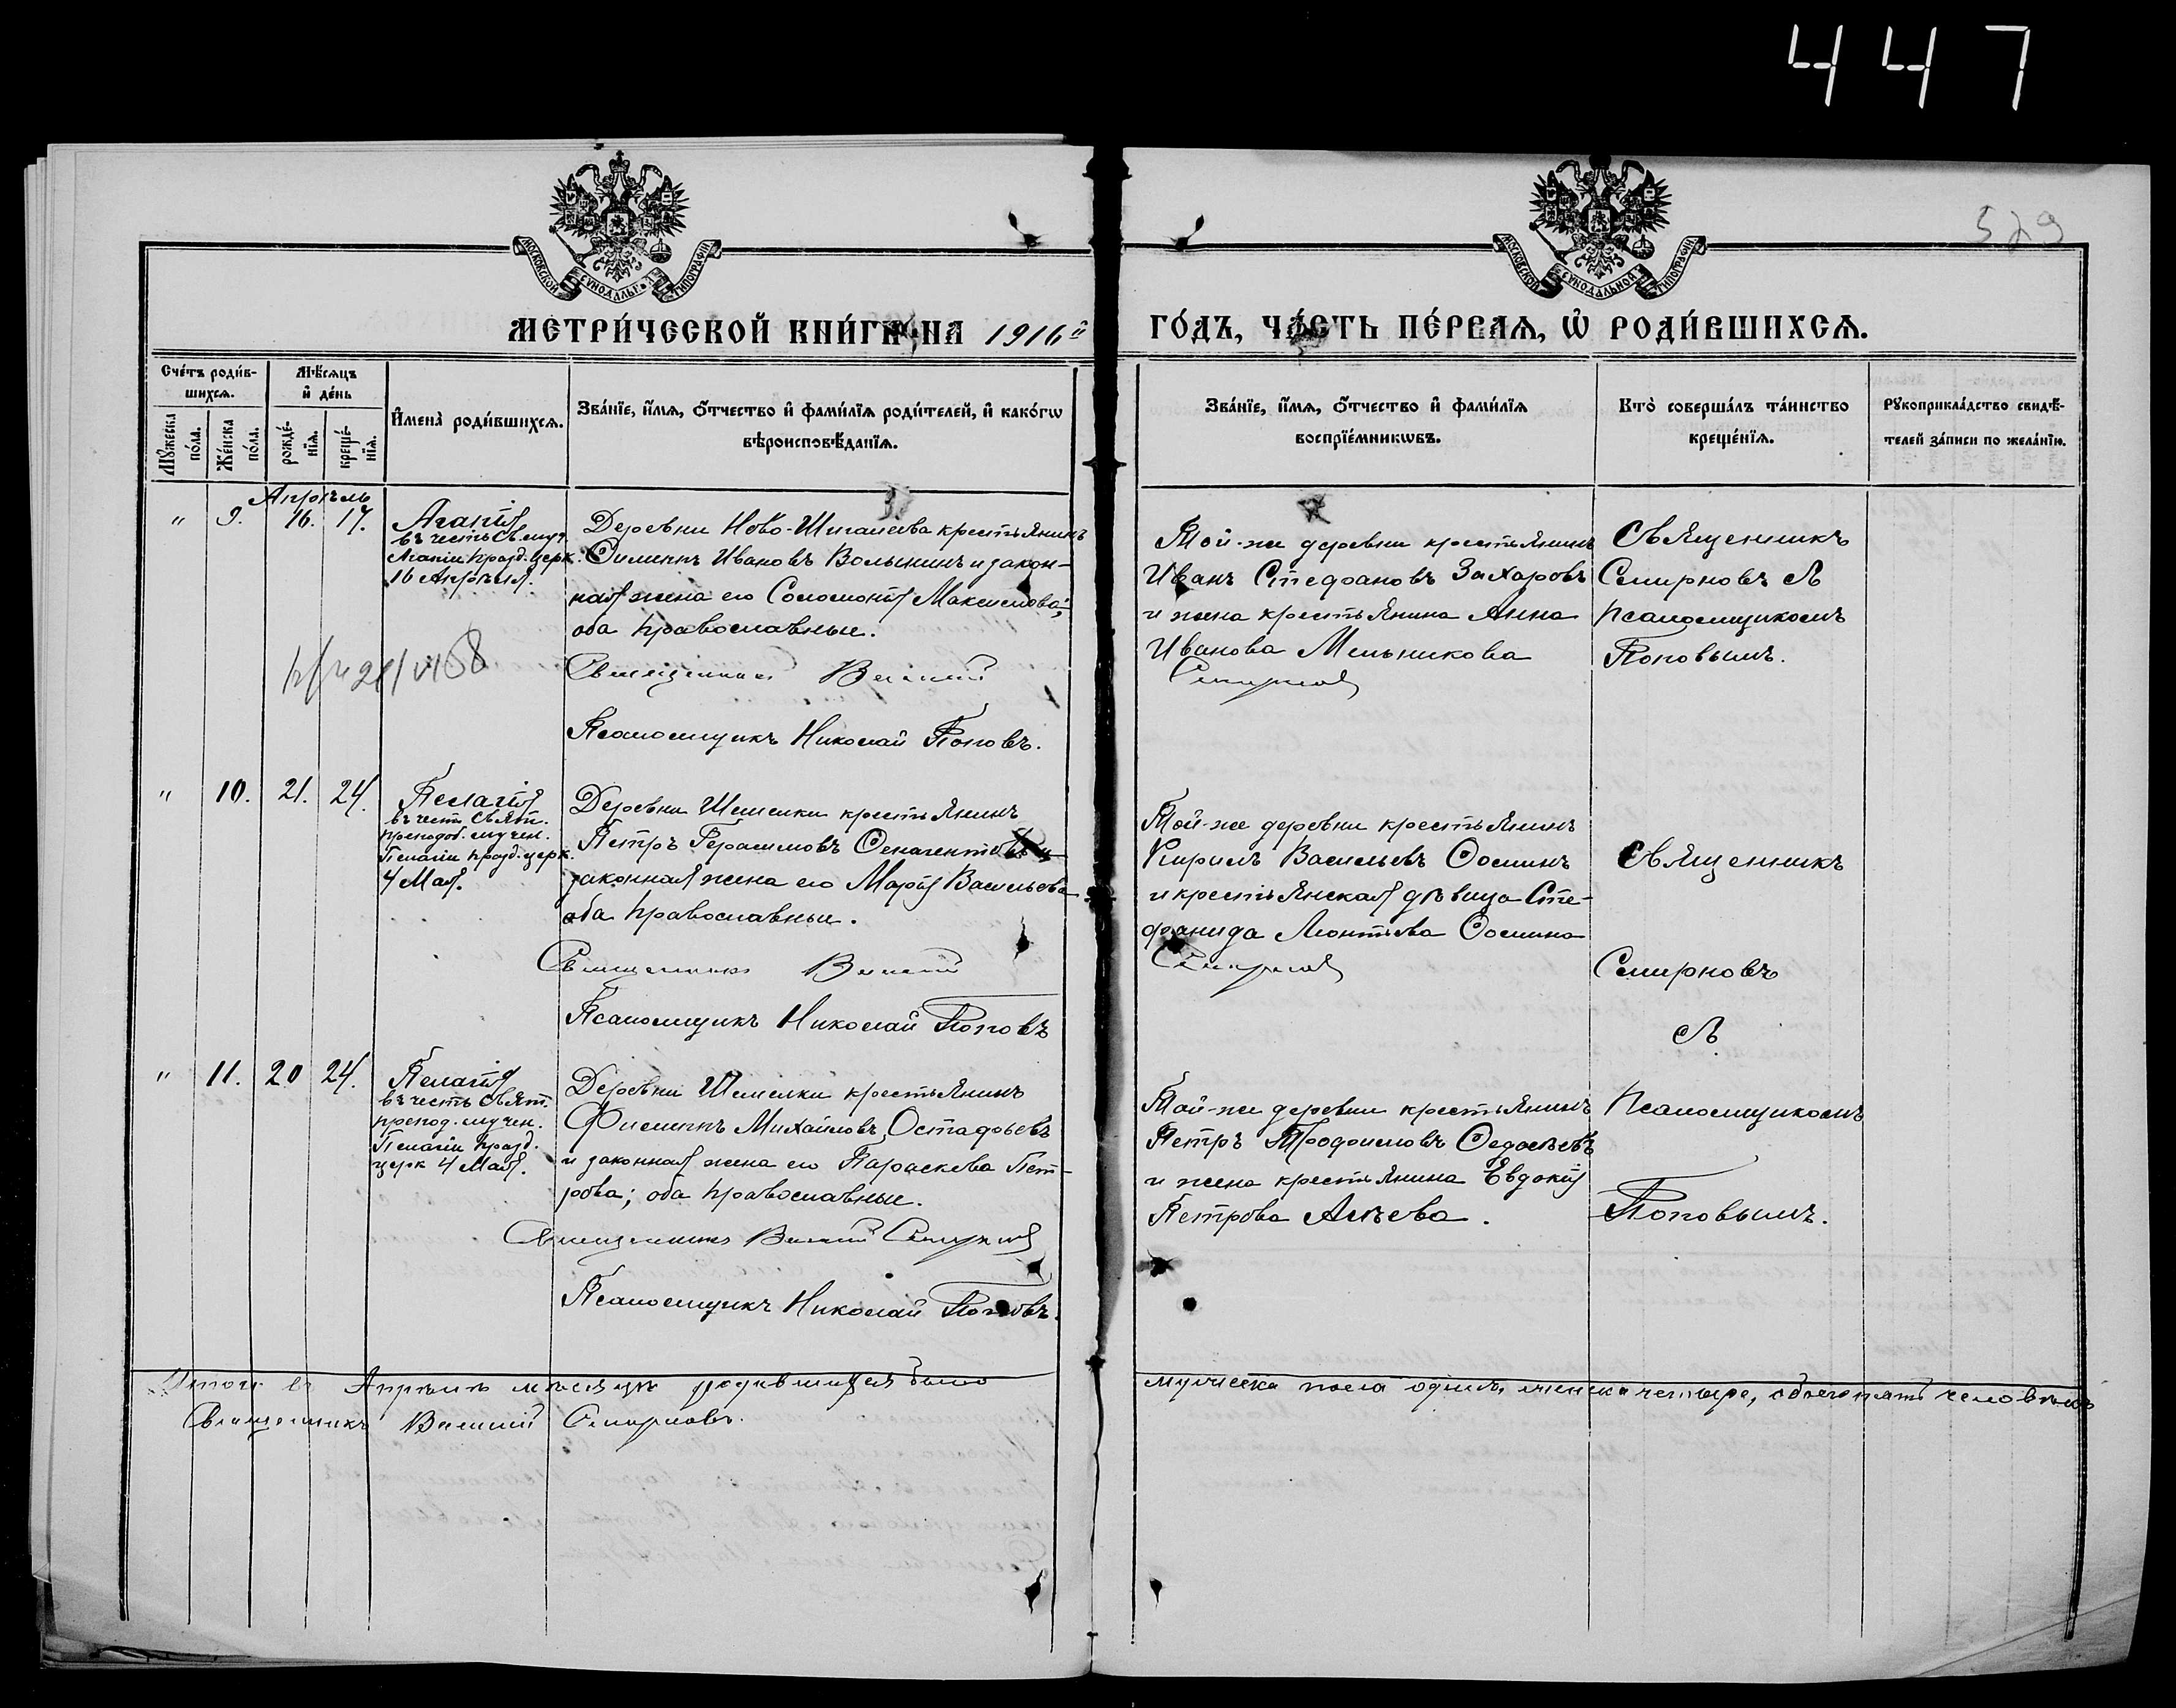 447
529
МОСКОВСКОЙ СУНОДАЛЬНОЙ ТИПОГРАФІИ
МОСКОВСКОЙ СУНОДАЛЬНОЙ ТИПОГРАФІИ
МЕТРИ́ЧЕСКОЙ КНИ́ГИ НА 1916й ГО́ДЪ, ЧА́СТЬ ПЕ́РВАЯ, Ѡ҆ РОДИ́ВШИХСЯ.
Сче́тъ роди́в-
шихся.
Мѣ́сяцъ
и҆ де́нь
Мꙋ́жеска по́ла.
Же́нска по́ла.
рожде́-
нїя.
креще́-
нїя.
И҆мена̀ роди́вшихся.
Зва́нїе, и҆́мя, ѻ҆́тчество и҆ фами́лїя роди́телей, и҆ како́гѡ
вѣроисповѣ́данїя.
Зва́нїе, и҆́мя, ѻ҆́тчество и҆ фами́лїя
воспрїе́мникѡвъ.
Кто̀ соверша́лъ та́инство
креще́нїя.
Рꙋкоприкла́дство свидѣ́-
телей за́писи по жела́нїю.
Апрѣль
" 9. 16. 17.
Агапія
въ честь Св. муч.
Агапіи празд. церк.
16 Апрѣля.
Деревни Ново-Шигалеева крестьянинъ
Филиппъ Ивановъ Волынинъ и закон-
ная жена его Соломонія Максимова;
оба православные.
Священникъ Василій Смирновъ
Псаломщикъ Николай Поповъ.
Той-же деревни крестьянинъ
Иванъ Стефановъ Захаровъ
и жена крестьянина Анна
Иванова Мельникова
Священникъ
Смирновъ съ
псаломщикомъ
Поповымъ.
" 10. 21. 24.
Пелагія
въ честь Свят.
преподоб. мучен.
Пелагіи празд. церк.
4 Мая.
Деревни Шемелки крестьянинъ
Петръ Герасимовъ и
законная жена его Марія Васильева
оба православные.
Священникъ Василій Смирновъ
Псаломщикъ Николай Поповъ
Той-же деревни крестьянинъ
Кирилъ Васильевъ Ѳоминъ
и крестьянская дѣвица Сте-
фанида Леонтьева Ѳомина
Священникъ
Смирновъ
съ
" 11. 20 24.
Пелагія
въ честь Свят.
препод. мучен.
Пелагіи празд.
церк 4 Мая.
Деревни Шемелки крестьянинъ
Филиппъ Михайловъ Остафьевъ
и законная жена его Параскева Пет-
рова; оба православные.
Священникъ Василій Смирновъ
Псаломщикъ Николай Поповъ.
Той-же деревни крестьянинъ
Петръ Трофимовъ Ѳедосѣевъ
и жена крестьянина Евдокія
Петрова Агѣева.
псаломщикомъ
Поповымъ.
Итого въ Апрѣлѣ мѣсяцѣ родившихся было мужеска пола одинъ, женска четыре, обоего пять человѣкъ
Священникъ Василій Смирновъ.